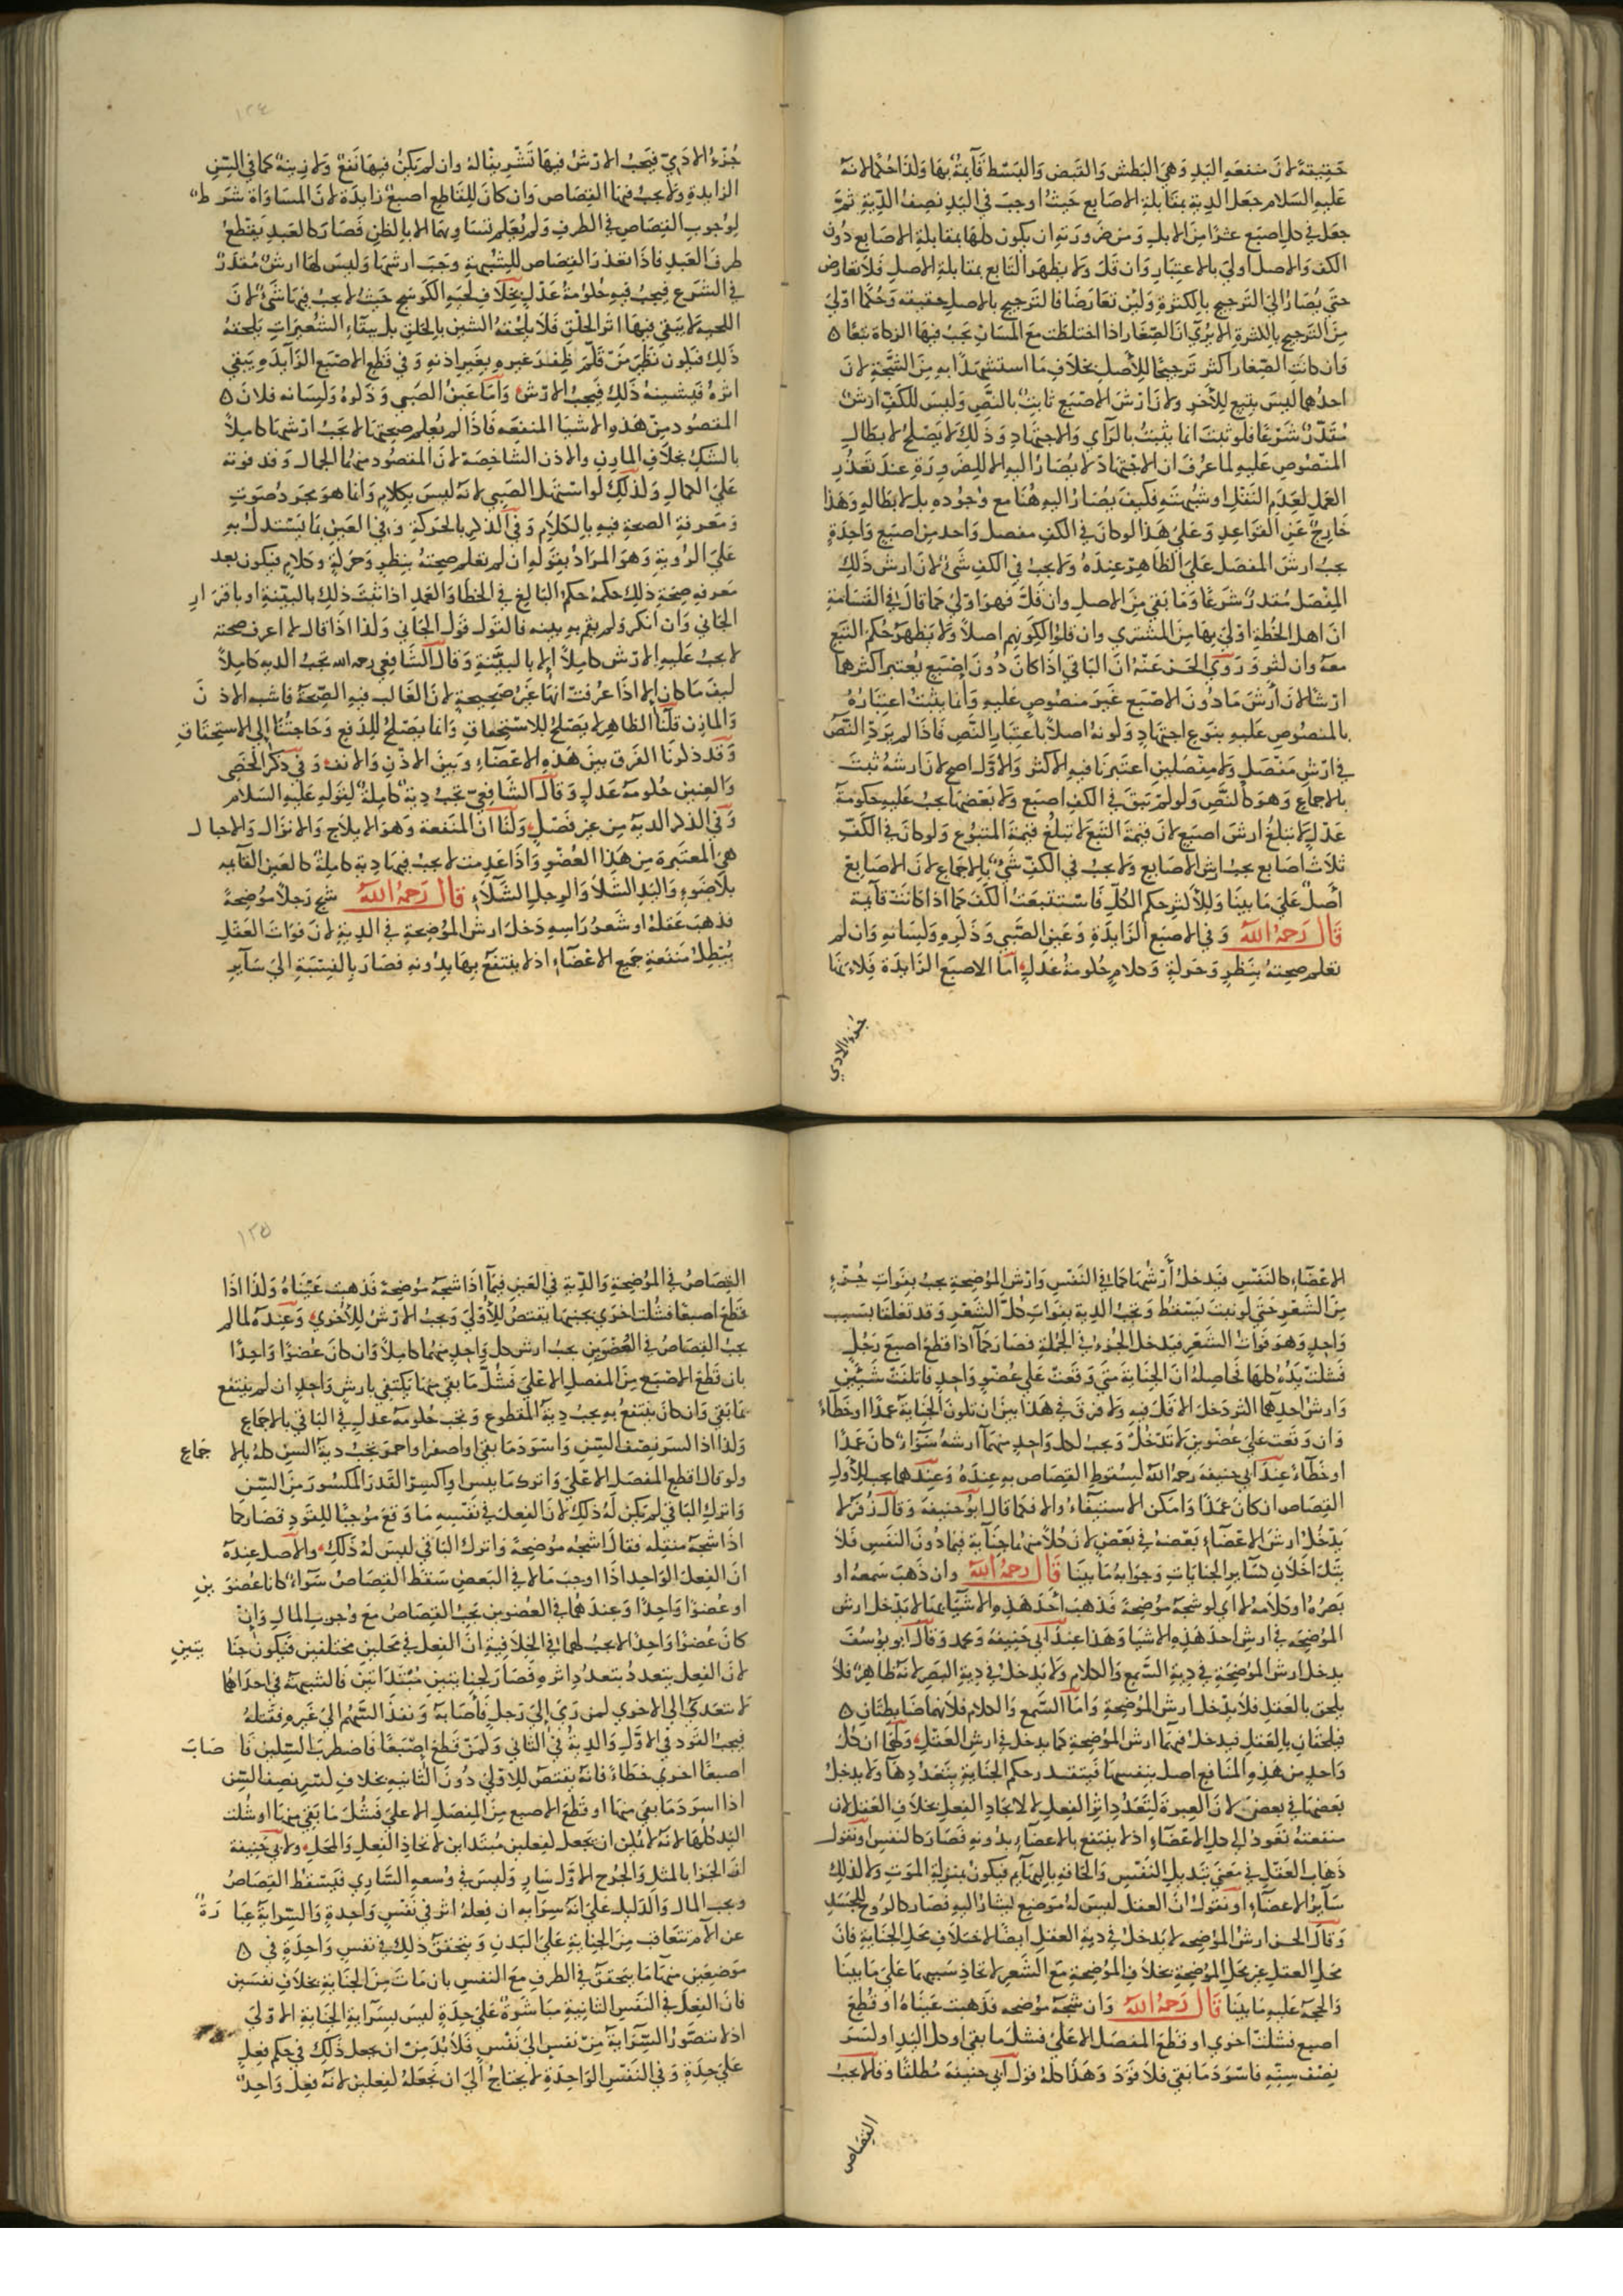 حَقِيقَةً لانَ منفعَه اليَدِ وَهِيَ البَطش وَالقَبض وَالبَسْط قَآيمةٌ بهَا وَلذَا حُكمًا لانهُ
عَليهِ السَلام جعَل الدِيَة بمقَابلةِ الاصَابع حَيثُ اوجبَ في اليَدِ نصِفُ الدِّيةِ ثمَّ
جعَل في كل اصبَع عشرًا مِنَ الابلِ وَمِن ضَرورَتهِ ان يكون كلها بمقابلةِ الاصَابع دُون
الكف وَالاصلُ اوليَ بالاعتِبارِ وَان قلَّ وَلا يظهَر التَابع بمقابلةِ الاصلِ فَلا تعَارض
حتيَ يُصَارُ اليَ التَرجيح بالكثرَةِ وَلئِن تعَارضَا فالتَرجيح بالاصلِ حقيقه وَحُكمًا اوْليَ
مِنَ التَرجيح بالكثرةِ الا يُرَي انَ الصِغَار اذا اختلطَت معَ المَسَانّ يجَبُ فيهَا الزكاة تبعًا ه
وَان كانَت الصِغار اكثر تَرجيحًا للأصلِ بخلَافِ مَا استشهَدَا بهِ مِنَ الشجَّةِ لانَ
احدُهما ليسَ بتبع للآخرِ وَلانَ ارْشَ الاصبَع ثابتٌ بالنَصِّ وَليسَ للكفِّ ارشٌ
مُقَدَّرٌ شَرعًا فلو ثبتَ انما يثبتُ بالرَآيِ وَالاجتهَادِ وَذلِكَ لا يَصلحُ لابطَالِ
المنصُوصِ عَليهِ لما عرفَ ان الاجتهادَ لا يُصَارُ اليهِ الا للِضرورَةِ عندَ تعَذُّرِ
العَملِ لعَدَمِ النَقلِ او شبُهتهِ فكيفَ يُصَارُ اليهِ هُنَا مع وُجُودهِ بل لابطالهِ وَهَذا
خَارِجٌ عَنِ القوَاعِدِ وَعَليَ هَذا لو كانَ في الكفِ مفصل وَاحد مِن اصبَع وَاحِدَةٍ
يجبُ ارشَ المفصَل عَليَ الظاهِر عِندَهُ وَلا يجبُ فِي الكفِ شَئٌ لانَ ارشَ ذلِكَ
المِفصَل مُقَدَّرٌ شَرعًا وَمَا بَقيَ مِنَ الاصلِ وان قلَّ فهوَ اوْليَ كمَا قالَ في القسَامةِ
انَ اهل الخُطةِ اوْليَ بهَا مِنَ المُشتَري وان قلوْا لِكَونهِم اصلاً وَلا يَظهَرُ حُكم التبَع
معَهُ وان كثر وَروَي الحَسَن عَنهُ انَ البَاقي اذَا كانَ دُونَ اصْبَع يُعتبرُ اكثرهما
ارشًا لانَ أرشَ مَا دُونَ الاصْبَع غَيرَ منصُوصٍ عَليهِ وَانما يثبتُ اعتِبَارُهُ
بالمنصُوص عَليهِ بنوع اجتهَادٍ وَكونهُ اصلاً باعتبَار النَص فَاذَا لم يَردِّ النَّصُ
في ارْشِ مَفصَلٍ وَلا مِفصَلينِ اعتبَرنَا فيهِ الاكثر وَالاوَّل اصح لانَ ارشهُ ثبتَ
بالاجماعِ وَهوَ كالنَصِ وَلو لمْ يَبقَ في الكفِّ اصبَع وَلا بَعضهَا يجبُ عَليهِ حكومَةُ
عَدْلٍ لا تبلغُ ارشَ اصبَع لانَ قيمَة التبَع لا تبلغُ قيمَةَ المتبُوع وَلو كانَ في الكَفِّ
ثلَاثُ اصَابع يجبُ ارش الاصَابع وَلا يجبُ في الكفِّ شَيٌ بالاجماعِ لانَ الاصَابعَ
أصلٌ عَليَ مَا بينَا وَللأكثرِ حكم الكُلِّ فَاسْتتبَعتْ الكَفَّ كما اذا كانَتْ قآيمة
قَالَ رَحمَهُ اللهَُ وَفي الاصبَع الزَايدَةِ وَعَينِ الصَّبي وَذَكرِهِ وَلسَانهِ وَان لم
تعلم صحِتهُ بنَظرٍ وَحَركةٍ وَكلامٍ حُكومَةُ عَدلٍ امَا الاصبَع الزَايدَة فَلانهَا
جُزءُ الادمي
١٢٤
جُزءُ الادَمِيّ فيَجبُ الارْشُ فيهَا تَشْريفًا لهُ وان لم يَكنْ فيهَا نَفعٌ وَلا زينةٌ كما في السِّنِ
الزايدةِ وَلا يجبُ فيهَا القِصَاص وَان كانَ للِقَاطعِ اصبعٌ زايدَة لانَ المسَاوَاة شَرطٌ
لِوُجوبِ القِصَاصِ في الطرفِ وَلم يُعْلم تسَاويهمَا الا بالظنِ فَصَارَ كالعَبدِ يَقطعُ
طرفَ العَبدِ فَاذَا تعَذرَ القِصَاص للشُبهةِ وَجبَ ارشهَا وَليسَ لهَا ارشٌ مُقدَرٌ
في الشَرعِ فيَجبُ فيهِ حُكومَةُ عَدْلٍ بخِلَافِ لحيَةِ الكَوسَج حَيثُ لا يجبُ فيهَا شَيٌ لانَ
اللحيَة لا يَبقي فيهَا اثر الحَلْقِ فَلا يلحقهُ الشين بالحَلقِ بل ببقَاءِ الشعُيرَاتِ يلحقهُ
ذَلِكَ فيَكون نظيرَ مَنْ قلّمَ ظفرَ غيرهِ بغيرِ اذنهِ وَفي قَطعِ الاصْبَع الزَآيدَةِ يَبقي
اثرهُ فيَشينهُ ذَلِكَ فَيجبُ الارْشُ وَامَا عَينُ الصَبي وَذَكَرهُ وَلِسَانه فلانَ ه
المقصُود مِن هَذهِ الاشيَا المنفعَه فَاذَا لم يُعلم صحِتهَا لا يجَبُ ارْشهَا كامِلاً
بالشكِ بخلَافِ المارِنِ والاذن الشاخِصَة لانَ المقصُود منهُما الجمال وَقد فوته
عَليَ الكمالِ وَلذلِكَ لو استهَل الصَبي لانَهُ ليسَ بِكلامٍ وَانما هوَ مجَردُ صَوتٍ
وَمَعرفةِ الصحَةِ فيهِ بالكلَامِ وَفي الذكرِ بالحَركةِ وَفي العَينِ بمَا يَستدلُ بهِ
عَليَ الرُويةِ وَهوَ المرَادُ بقولهِ ان لم تعلم صِحتهُ بنِظرٍ وَحَركةٍ وكلامٍ فيكون بعد
معرفه صِحَةِ ذلِكَ حكمهُ حكمُ البَالغ في الخطَا وَالعَمَدِ اذا ثبتَ ذلِكَ بالبينةِ او باقرَارِ
الجَاني وَان انكرَ وَلم يقم بهِ بينه فَالقول قَولَ الجَاني وَلذا اذَا قالَ لا اعرفُ صحته
لا يجبُ عَليهِ الارْش كامِلاً الا بالبيَّنةِ وَقالَ الشَافِعي رحمه الله تجَبُ الديه كامِلاً
كيفَ مَا كان الا اذَا عرُفت انهَا غيرُ صَحِيحةٍ لانَ الغَالب فيهِ الصِّحَةُ فَاشبه الاذنَ
وَالمارِن قلْنَا الظاهِر لا يصَلحُ للاستحِقاقِ وَانما يصَلحُ للِدَفعِ وَحَاجتُنَا إلى الاستِحقاقِ
وَقَد ذكرنَا الفَرقَ بينَ هَذهِ الاعضَآءِ وَبينَ الاذْنِ وَالانفِ وَفي ذَكرِ الخَصي
وَالعِنينِ حكومةُ عَدلٍ وَقالَ الشَافِعيّ تجبُ دِيةٌ كامِلةٌ لِقولهِ عَليهِ السَلام
وَفي الذكر الديَة مِن غيرِ فَصْلٍ وَلنَا انَ المنَفعة وَهوَ الايلاج وَالانزَال وَالاحبال
هي المعتبَرة مِن هَذا العُضوِ وَاذَا عَدِمت لا يجبُ فيهَا دِيةٌ كامِلةٌ كالعَينِ القآيمهِ
بلَا ضَوءٍ وَاليَدِ الشلآءِ وَالرِجلِ الشَلَّاءِ قَالَ رَحمَهُ اللهُ شج رَجلًا مُوضِحةً
فذهبَ عَقلهُ او شَعرُ رَاسِهِ دَخلَ ارشُ المُوضِحةِ في الدِيةِ لانَ فوَاتَ العَقلِ
يُبْطِلُ مَنفَعةِ جَميع الاعْضَآءِ اذ لا ينتفعُ بهَا بدُونهِ فصَارَ بالنِسبَةِ اليَ سَآيرِ
الاعضَآءِ كالنَفسِ فيَدخلُ أَرْشُهَا كما في النَفسِ وَارْش الموُضِحةِ يجبُ بفَواتِ جُزءٍ
مِنَ الشَعْرِ حَتي لو نبتَ يَسْقطُ وَتجبُ الديةِ بفَواتِ كُلِّ الشَعْرِ وَقد تعَلقَا بسَبب
وَاحِدٍ وَهوَ فوَاتُ الشَعْرِ فيَدخلُ الجُزءُ في الجُملةِ فصَارَ كما اذا قطعَ اصبعَ رَجُلٍ
فَشلتْ يَدُهُ كلهَا فحَاصِلهُ انَ الجنَايَة متي وَقعَتْ عَلي عُضوٍ وَاحِدٍ فَاتلفَتْ شَيئَينِ
وَارش احدِهما اكثر دَخل الاقَلّ فيهِ وَلا فرقَ في هَذا بينَ ان تكونَ الجنَايةُ عمدًا او خَطأً
وَان وَقعَت عَليَ عُضوَينِ لا تَدْخلُ وَيجبُ لكلِ وَاحِدٍ منهمَا ارشهُ سَوَآءٌ كانَ عَمدًا
او خطَاءً عِندَ ابي حَنيفةَ رَحمهُ اللهُ لسُقوطِ القِصَاص بهِ عِندهُ وَعِندَهما يجب للأولِ
القِصَاص ان كانَ عَمدًا وَامكن الاستيفَآءُ والا فكما قالَ ابو حَنيفةَ وَقالَ زُفَر لا
يَدْخُلُ ارشُ الاعضَآءِ بَعْضهُ في بَعْضٍ لانَ كُلاً مِنهَا جنَايةٌ فيمَا دُونَ النَفسِ فَلا
يتدَاخَلانِ كسَآيرِ الجنَايَاتِ وَجوَابهُ مَا بينَا قَالَ رَحمَهُ اللهُ وان ذَهبَ سَمعهُ او
بَصرُهُ او كلامُهُ لا اي لو شجهُ مُوضِحةً فَذهبَ احَدَ هَذهِ الاشيَآءِ بهَا لا يَدخل ارش
الموُضِحَهِ في ارشِ احدِ هَذهِ الاشيَا وَهَذا عِندَ ابي حَنِيفهَ وَمحمد وَقالَ ابو يوُسُفَ
يدخل ارش الموُضِحَةِ في دِيةِ السَّمعِ وَالكلامِ وَلا يَدخلُ في ديةِ البَصَرِ لانهُ ظاهِرٌ فلَا
يلحق بالعَقلِ فلاَ يدْخل ارش الموُضِحةِ وَامَا السَّمع وَالكلام فلانهمَا بَاطِنَانِ ه
فيلحقَانِ بالعَقلِ فيدخلُ فيهمَا ارش الموُضِحةِ كما يدخلُ في ارشِ العَقلِ وَلهُمَا ان كلَ
وَاحِدٍ مِن هَذِهِ المنَافِعِ اصل بنفسِهَا فيَتعَدد حكم الجِنَايةِ بتَعَدُّدِهَا وَلا يدخلُ
بَعضهَا في بعضٍ لانَ العِبرةَ لتَعَدُّدِ اثرِ الفِعلِ لا لاتحادِ الفِعلِ بخلَافِ العَقلِ لان
منفعتهُ تعُودُ الي كلِ الاعضَآءِ اذ لا ينتفع بالاعضَآءِ بدُونهِ فصَارَ كالنفسِ او نقولُ
ذَهَاب العَقلِ في مَعنيَ تبدِيلِ النَفسِ وَالحَاقهِ بالبهَآيمِ فيكون بمنزِلةِ الموَتِ وَلا كذلِكَ
سَآيرَ الاعضَآءِ او نقولُ انَ العقل ليسَ لهُ مَوضِع يُشَارُ اليهِ فصَارَ كالرُوحِ للجسَدِ
وَقالَ الحسَن ارشُ الموُضِحه لا يَدخلُ في ديةِ العَقلِ ايضًا لاختلافِ محَلِ الجنَايةِ فانَ
محَل العقلِ غيرَ محَلِ الموُضِحَةِ بخلَافِ الموُضِحَةِ معَ الشَعرِ لاتحَادِ سَببهِمَا عَليَ مَا بينَا
وَالحجَةُ عَليهِ مَا بينَا قَالَ رَحمَهُ اللهُ وَان شجهُ مُوضحه فذهبت عَينَاهُ او قُطِعَ
اصبع فشلتْ اخري او قطعَ المفصَل الاعَليَ فشلَ مَا بقيَ او كل اليَدِ او كسَرَ
نِصْف سِنّهِ فَاسْوَدَ مَا بَقي فلَا قوَدَ وَهَذا كلهُ قولُ ابي حَنيفهَ مُطلقًا وَقالا يجبُ
القِصَاص
١٢٥
القِصَاصُ في الموُضِحَةِ وَالدِّيةُ في العَينِ فيمَا اذَا شجَهُ مُوضِحةً فَذهبت عَينَاهُ وَلذَا اذَا
قطعَ اصبعًا فشُلت اخرَي بجنبهَا يقتصُ للأوْليَ وَيجبُ الارْشُ للأخري وَعِندهُ لما لم
يجبُ القصَاصُ في العُضوَينِ يجبُ ارش كل وَاحِدٍ منهُما كامِلاً وَان كانَ عُضوًا وَاحِدًا
بان قَطعَ الاصْبَع مِنَ المفصَلِ الاعْليَ فَشُلَّ مَا بقيَ منهَا يَكتفِي بارشٍ وَاحِدٍ ان لم ينتفع
بما بَقيَ وَان كانَ يُنتَفعُ بهِ يجبُ ديةُ المقطوعِ وَتجبُ حُكومةُ عَدلٍ في البَاقي بالاجماعِ
وَلذا اذا كسَر نِصْف السّنِ وَاسْوَدَ مَا بقيَ او اصفرَ او احمرَ تجبُ ديةُ السِنِ كلهُ بالاجماع
ولو قال اقطع المفصَل الاعليَ وَاترك مَا يبسَ او اكسِر القَدرَ المكسُورَ مِنَ السِّنِ
وَاترك البَاقي لم يَكن لهُ ذَلِكَ لانَ الفعلَ في نَفسِهِ مَا وَقعَ مُوجبًا للقَودِ فصَارَ كما
اذا شجَهُ منقلِه فقالَ اشجهُ مُوضِحةً وَاترك البَاقي ليسَ لهُ ذَلِكَ وَالاصل عِندهُ
انَ الفِعل الوَاحِد اذَا اوجبَ مَالا في البَعضِ سَقطَ القِصَاصُ سَوَآءٌ كانَا عُضوَينِ
او عُضوًا وَاحِدًا وَعِندَهما في العُضوَينِ يجبُ القِصَاصُ معَ وُجوبِ المالِ وَانْ
كانَ عُضوًا وَاحِدًا لا يجبُ لهمَا في الخِلَافيَةِ انَ الفعلَ في محَلينِ مختلفينِ فَيكون جنَايتينِ
لانَ الفِعل يتعدد بتعدُدِ اثرهِ فصَارَ كجنَايتينِ مُبتَدَاتينِ فَالشبهَةُ في احدَاهُما
لا تتعدَي الي الاخري كمن رَمَي إلي رَجلٍ فَأصَابهُ وَنفذَ السَّهمُ اليَ غَيرهِ فقَتلهُ
فيجبُ القَود في الاوَّلِ وَالديةُ في الثَاني وَكمَنْ قطعَ اصبَعًا فَاضطربَ السِكين فَاصَابَ
اصبعًا اخري خطَاءً فَانهُ يقتصُ للاوْليَ دُونَ الثانيةِ بخلَافِ كسرِ نِصفِ السِّنِ
اذا اسوَدَ مَا بقيَ منهَا او قَطعَ الاصبع مِنَ المِفصَلِ الاعليَ فشُلَ مَا بَقيَ منهَا او شُلت
اليَد كُلهَا لانهُ لا يمكن ان يجعل كفعلينِ مُبتدَاينِ لاتحادِ الفِعلِ وَالمحَلِ وَلأبي حَنِيفةَ
انَ الجزَا بالمثلِ وَالجرُح الاوَّل سَارٍ وَليسَ في وُسعهِ السَّاري فيَسْقطُ القِصَاصُ
وَيجبُ المال وَالدَليل عَلي انهُ سِرَآيةٌ ان فِعلهُ اثرَ في نَفْسٍ وَاحدةٍ وَالسِّرَايةُ عبَارَةٌ
عن آلامٍ تتعَاقب مِنَ الجِنايةِ عَليَ البَدنِ وَيتحققُ ذلِكَ في نفسٍ وَاحِدَةٍ في ه
مَوضِعَينِ منهَا كما يتحَققُ في الطرفِ معَ النفسِ بان مَاتَ مِنَ الجنَايةِ بخلَافِ نفسَينِ
فانَ الفِعلَ في النَفسِ الثانيةِ مبَاشرَةٌ عَليَ حِدَةٍ ليسَ بِسِرَآيةِ الجنَايةِ الاوْليَ
اذ لا تتصَورُ السّرَايةُ مِنْ نفسٍ اليَ نَفْسٍ فَلا بُدَ مِنْ ان يجعل ذَلِكَ في حكمِ فعلٍ
عَليَ حِدَةٍ وَفي النَفسِ الوَاحِدَةِ لا يحتاجُ اليَ ان نجعَلهُ كفعلينِ لانهُ فِعلٌ وَاحِدٌ